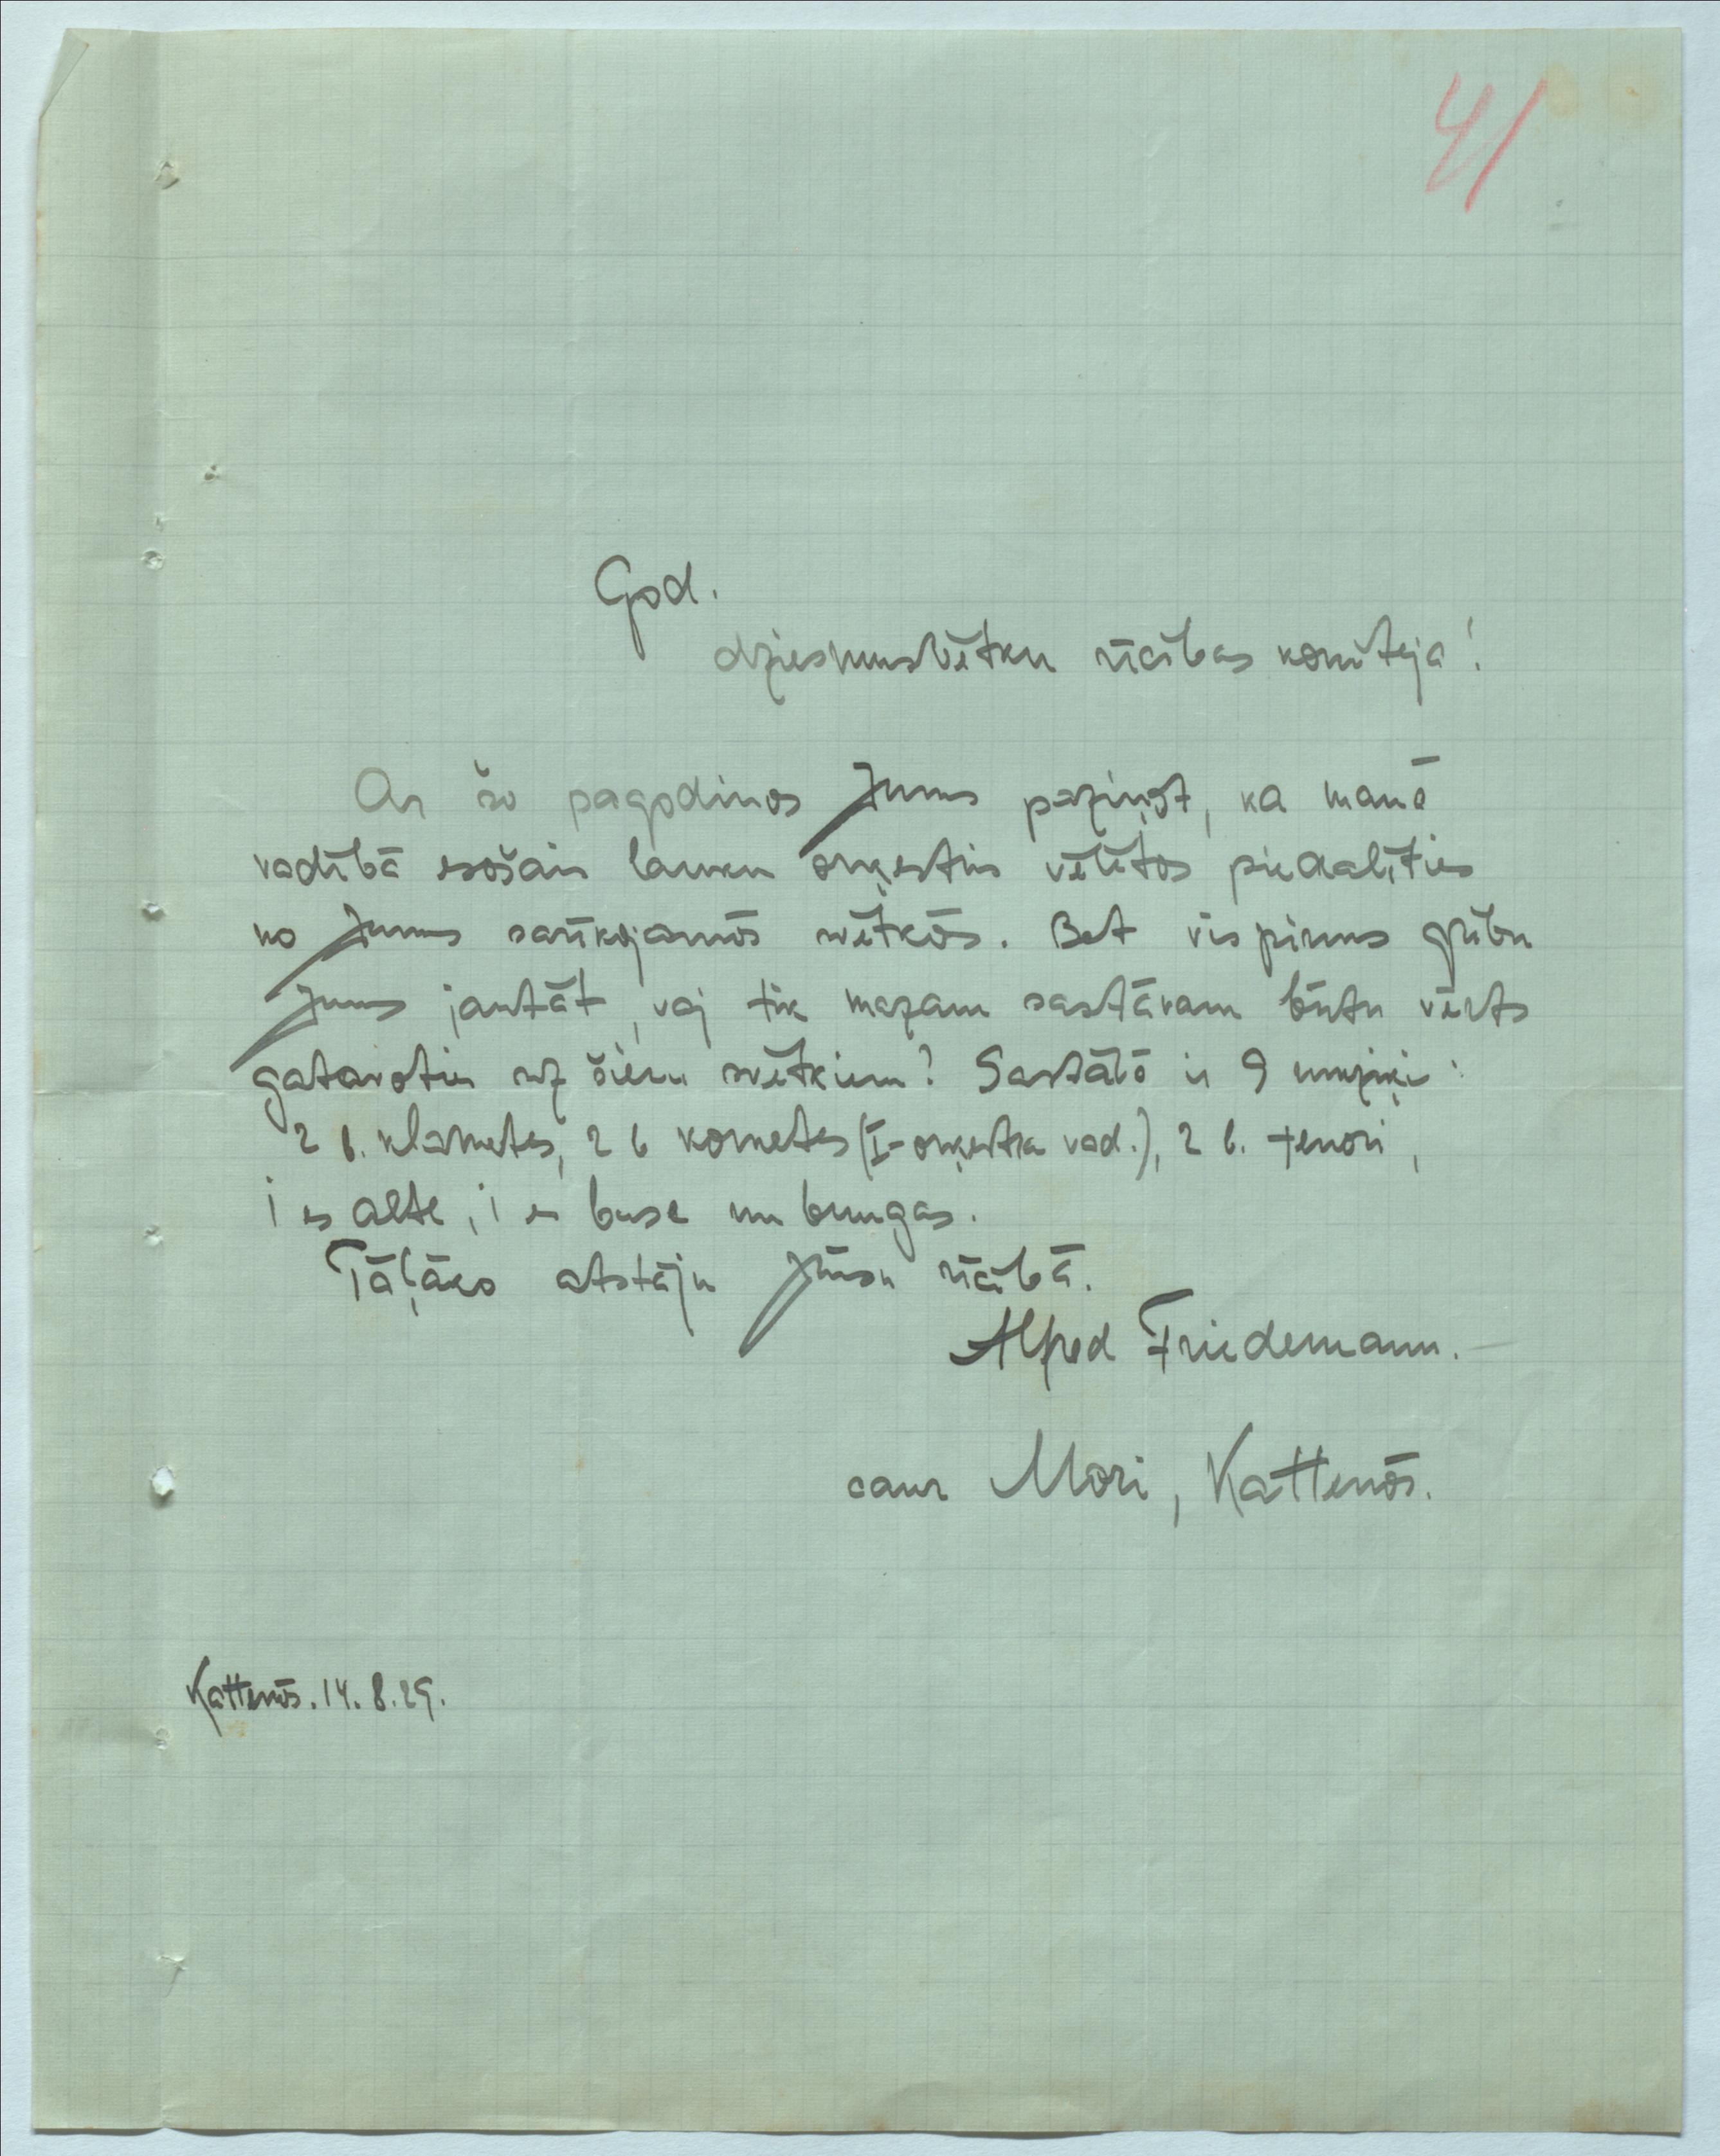 41
God.
dziesmusvētku rīcības komiteja!
Ar šo pagodinos Jums paziņot, ka manā
vadībā esošais lauku orķestris vēlētos piedalīties
no Jums sarīkojamōs svētkōs. Bet vispirms gribu
Jums jautāt, vaj tik mazam sastāvam būtu vērts
gatavoties uz šiem svētkiem? Sastāvā ir 9 muziķi:
2 b. klarnetes, 2 b kornetes (I-orķestra vad.), 2 b. tenori,
1 es alte, 1 es base un bungas.
Tāļāko atstāju Jūsu rīcībā.
Alfred Friedemann.
caur Mori, Kattenōs.
Kattenōs. 14. 8. 29.